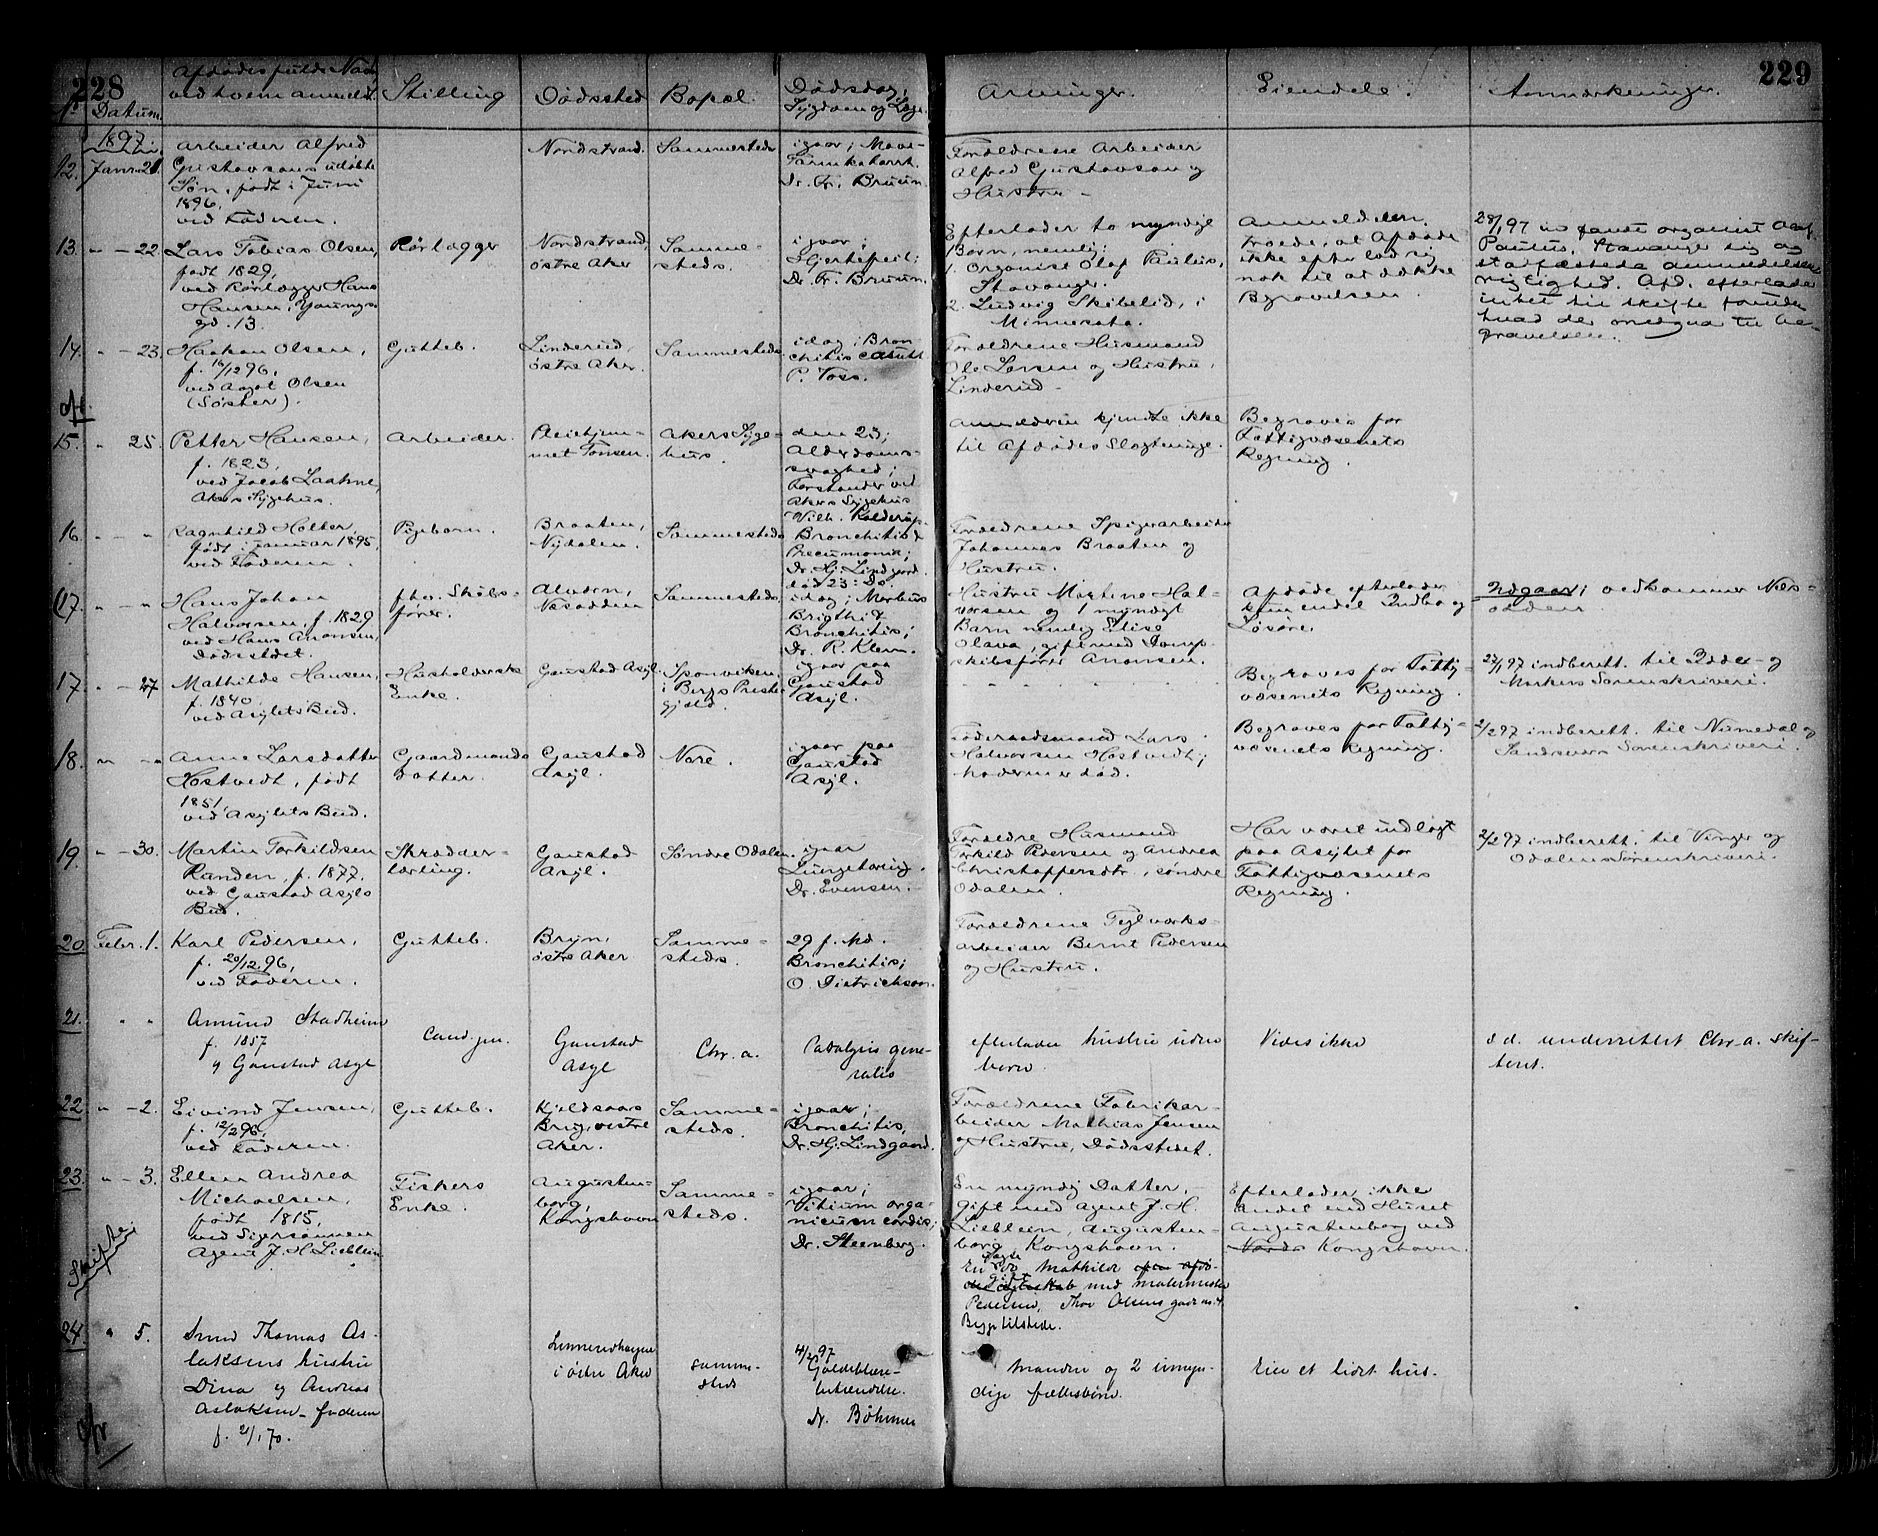 228
229
No
Datum.
Afdødes fulde Navn
ved hvem anmeldt.
Stilling
Dødssted
Bopæl.
Dødsdag,
Sygdom og Læge.
Arvinger.
Eiendele.
Anmærkninger.
1897
12. Janr. 21.
Arbeider Alfred
Gustavsons udøbte
Søn, født i Juni
1896,
ved Faderen.
Nordstrand.
Sammesteds
igaar; Mave-
Tarmkatarrh.
Dr. Fr. Bruun.
Forældrene Arbeider
Alfred Gustavson og
Hustru -
13. " - 22.
Lars Tobias Olsen,
født 1829,
ved Rørlægger Hans
Hansen, Youngs
gd. 13.
Rørlægger
Nordstrand,
østre Aker
Samme-
steds.
igaar;
Hjertefeil;
Dr. Fr. Bruun.
Efterlader to myndige
Børn, nemlig:
1. Organist Olaf Paulus,
Stavanger.
2. Ludvig Skibelid, i
Minnesota.
Anmelderen
troede, at Afdøde
ikke efterlod sig
nok til at dække
Begravelsen.
28/1 97 in fandt organist Olaf
Paulus, Stavanger sig og
stadfæstede anmeldelsens
rigtighed. Afd. efterlader
intet til skifte foruden
hvad der medgaar til be-
gravelsen.
14. " - 23.
Haakon Olsen,
f. 16/12 96,
ved Aagot Olsen
(Søster).
Gutteb.
Linderud,
østre Aker.
Sammesteds
idag; Bron-
chitis acut
P. Voss.
Forældrene Husmand
Ole Larsen og Hustru,
Linderud -
15. " 25.
Petter Hansen,
f. 1823,
ved Jacob Laahne,
Akers Sygehus.
Arbeider.
Pleiehjem-
met Tonsen.
Akers Syge-
hus.
den 23;
Alderdoms-
svaghed;
Forstander ved
Akers Sygehus
Wilh. Kolderup
Anmelderen kjendte ikke
til Afdødes Slægtninge.
Begraves for
Fattigvæsenets
Regning.
16. " - "
Ragnhild Holter,
født i Januar 1895,
ved Faderen.
Pigebarn.
Braaten,
Nydalen.
Sammesteds
Bronchitis &
Pneumonia;
Dr. Hj. Lindgaard.
død 23: Ds.
Forældrene Spigerarbeider
Johannes Braaten og
Hustru.
(17. " - "
Hans Johan
Halvorsen, f. 1829
ved Hans Anonsen,
Dødsstedet.
fhv. Skibs-
fører.
Alværn,
Næsodden
Sammesteds,
idag; Morbus
Brigthi &
Bronchitis;
Dr. R. Klem.
Hustru Martine Hal-
vorsen og 1 myndigt
Barn nemlig Elise
Olava, gift med Damp-
skibsfører Anonsen.
Afdøde efterlader
kun endel Indbo og
Løsøre.
Udgaar; vedkommer Næs-
odden
17. " - 27
Mathilde Hansen,
f. 1840
ved Asylets Bud.
Husholderske
Enke.
Gaustad Asyl.
Sponviken,
i Bergs Præste-
gjæld.
igaar paa
Gaustad
Asyl.
" " " " "
Begraves for Fattig-
væsenets Regning.
27/1 97 indberett. til Idde- og
Markers Sorenskriveri.
18. " - "
Anne Larsdatter
Høstvedt, født
1851,
ved Asylets Bud.
Gaardmands
Datter.
Gaustad
Asyl.
Nore.
igaar paa
Gaustad
Asyl.
Føderaadsmand Lars
Halvorsen Høstvedt;
Moderen er død.
Begraves for Fattig-
væsenets Regning.
2/2 97 indberett. til Numedal og
Sandsværs Sorenskriveri.
19. " - 30.
Martin Torkildsen
Randen, f. 1877,
ved Gaustad Asyls
Bud.
Skrædder-
lærling.
Gaustad
Asyl.
Søndre Odalen.
igaar
Lungetæring.
Dr. Evensen.
Forældre Husmand
Torkild Pedersen og Andrea
Christoffersdtr., søndre
Odalen.
Har været indlagt
paa Asylet for
Fattigvæsenets
Regning.
2/2 97 indberett. til Vinger og
Odalens Sorenskriveri.
20. Febr. 1.
Karl Pedersen,
f. 20/12 96,
ved Faderen.
Gutteb.
Bryn,
østre Aker
Samme-
steds.
29 f. Md.
Bronchitis;
O. Dietrichson.
Forældrene Teglverks-
arbeider Bernt Pedersen
og Hustru.
21. " "
Amund Stadheim
f. 1857
v Gaustad Asyl
Cand. jur.
Gaustad
Asyl
Chr.a.
Paralysis gene-
ralis
efterlader hustru uden
børn.
Vides ikke
s.d. underrettet Chr.a. Skif-
teret.
22. " - 2.
Eivind Jensen,
f. 12/2 96,
ved Faderen.
Gutteb.
Kjeldsaas
Brug, vestre
Aker.
Samme-
steds.
igaar;
Bronchitis,
Dr. Hj. Lindgaard.
Forældrene Fabrikar-
beider Mathias Jensen
og Hustru, Dødsstedet.
23. " - 3.
Ellen Andrea
Michaelsen,
født 1815,
ved Svigersønnen
Agent J. H. Lieblein
Skifte
Fiskers
Enke.
Augusten-
borg,
Kongshavn
Samme-
steds.
igaar;
Vitium orga-
nicum cordis;
Dr. Steenberg.
En myndig Datter,
gift med Agent J. H.
Lieblein, Augusten-
borg Kongshavn.
Mathilde
gift med malermester
Pedersen, Thor Olsens gade no. 4.
Begge tilstede.
Efterlader ikke
andet end Huset
Augustenborg ved
Kongshavn.
24. " 5.
Smed Thomas As-
laksens hustru
Dina v Andreas
Aslaksen - faderen
f. 2/1 70.
i østre Aker
samme-
steds
4/2 97
Galdeblære-
betændelse.
Dr. Böhmer
Manden og 2 umyn-
dige fællesbørn.
Eier et lidet hus.